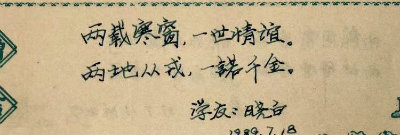 两载寒窗，一世情谊。
两地从戎，一諾千金。
学友：晓白
1989.7.18